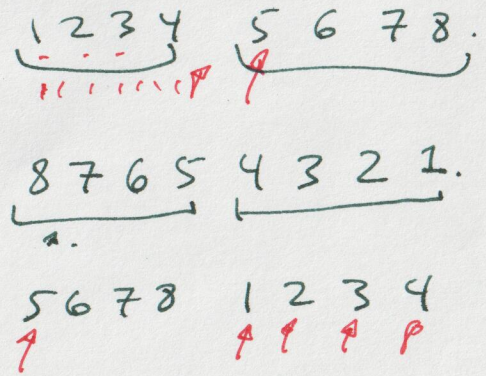 1 2 3 4 5 6 7 8.
8 7 6 5 4 3 2 1.
5 6 7 8 1 2 3 4